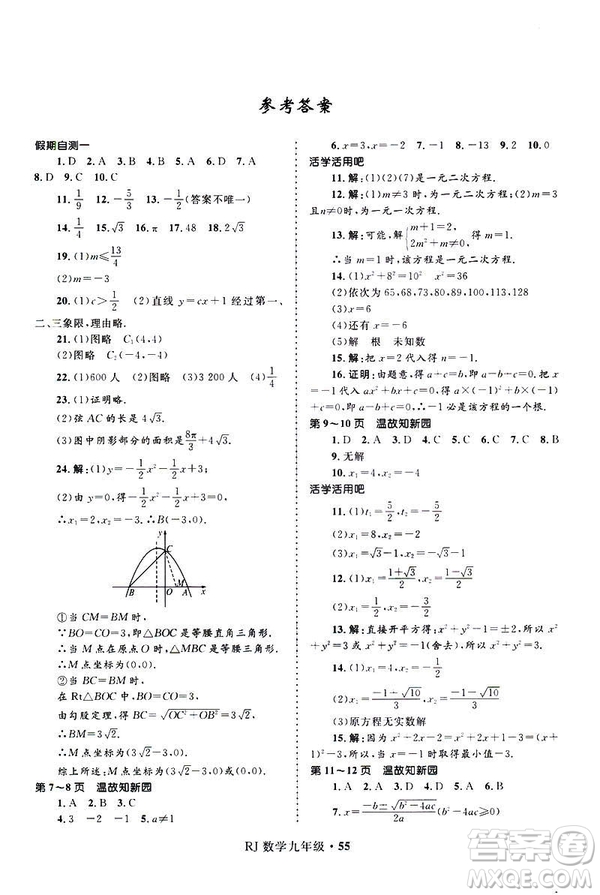 参考答案
假期自测一
1. D 2. A 3. A 4. B 5. C 6. C 7. A
8. D 9. C 10. C
11. 1/9 12. -5/3 13. -1/2(答案不唯一)
14. 1/4 15. √3 16. π 17. 48 18. 2√3
19. (1)m≤13/4
(2)m=-3
20. (1)c>1/2 (2)直线 y=cx+1 经过第一、
二、三象限,理由略.
21. (1)图略 C₁(4,4)
(2)图略 C₂(-4,-4)
22. (1)600 人 (2)图略 (3)3 200 人 (4)1/4
23. (1)证明略.
(2)弦 AC 的长是 4√3.
(3)图中阴影部分的面积是 8π/3+4√3.
24. 解:(1)y=-1/2x²-1/2x+3;
(2)由 y=0,得-1/2x²-1/2x+3=0,
∴x₁=2,x₂=-3,∴B(-3,0).
C
B O M A x
①当 CM=BM 时,
∵BO=CO=3,即△BOC 是等腰直角三角形,
∴当 M 点在原点 O 时,△MBC 是等腰三角形,
∴M 点坐标为(0,0).
②当 BC=BM 时,
在 Rt△BOC 中,BO=CO=3,
由勾股定理,得 BC=√(OC²+OB²)=3√2,
∴BM=3√2,
∴M 点坐标为(3√2-3,0).
综上所述,M 点坐标为(0,0)或(3√2-3,0).
第 7~8 页 温故知新园
1. C 2. A 3. B 4. C
5. x²-4x-3=0 1 -4 -3
6. x=±4 x=-2 7. -1 8. -13 9. 2 10. 0
活学活用吧
11. 解:(1)(2)(7)为一元二次方程.
12. 解:(1)m≠3 时,为一元二次方程;(2)m=3
且 n≠0 时,为一元一次方程.
13. 解:可能,解 {m+1=2, m²+m≠0, 得 m=1,
∴当 m=1 时,该方程是一元二次方程.
14. (1)x²+8²=10² x²=36
(2)依次为 65,68,73,80,89,100,113,128
(3)x=6
(4)还有 x=-6
(5)解 根 未知数
16. 证明:由题意,得 a+c=b,即 a-b+c=0.
把-1 代入 ax²+bx+c,得 a×(-1)²+b×
(-1)+c=a-b+c=0,∴-1 必是该方程的一个根.
第 9~10 页 温故知新园
1. D 2. A 3. D 4. D 5. C 6. D 7. C 8. B
9. 无解
10. x₁=4,x₂=-4
活学活用吧
11. (1)t₁=5/2,t₂=-5/2
(2)x₁=√3-1,x₂=-√3-1
12. (1)x₁=(1+√3)/2,x₂=(1-√3)/2
(2)x₁=4,x₂=-2
13. 解:直接开平方得:x²+y²-1=±3 所以 x²
+y²=4 或 x²+y²=-2(舍去),所以 x²+y²=4.
14. (1)x₁=6,x₂=-2
(2)x₁=(-1-√10)/3,x₂=(-1+√10)/3
(3)原方程无实数解
15. 解:∵x²+2x-2=x²+2x+1-3=(x+
1)²-3,∴当 x=-1 时,取得最小值-3.
第 11~12 页 温故知新园
1. A 2. D 3. C 4. B 5. C 6. D
7. x=(-b±√(b²-4ac))/2a(b²-4ac≥0)
RJ 数学九年级·55